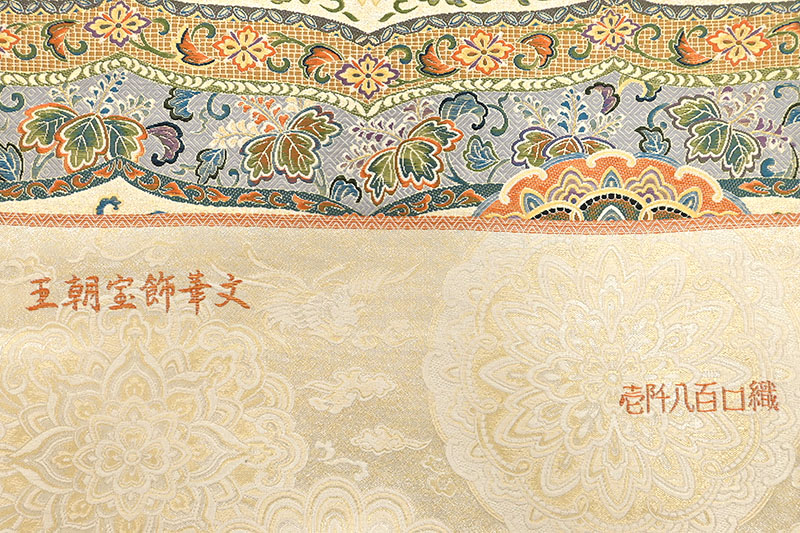 王朝宝飾華文
壱阡八百口織